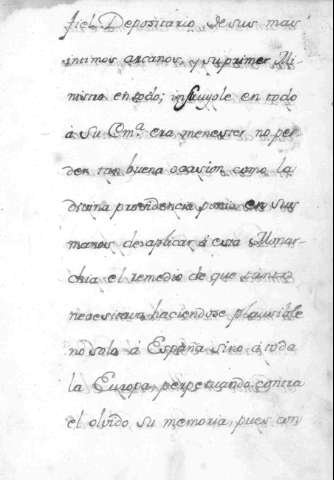 fiel Depositario de sus mas
intimos arcanos, y su primer Mi-
nistro en todo; influyole en todo
á Su Em.ª era menester no per
der tan buena ocasion como la
divina providencia ponia en sus
manos de aplicar á esta Monar-
chia el remedio de que tanto
necesitava haciendose plausible
no solo á España sino á toda
la Europa perpetuando contra
el olvido su memoria pues con